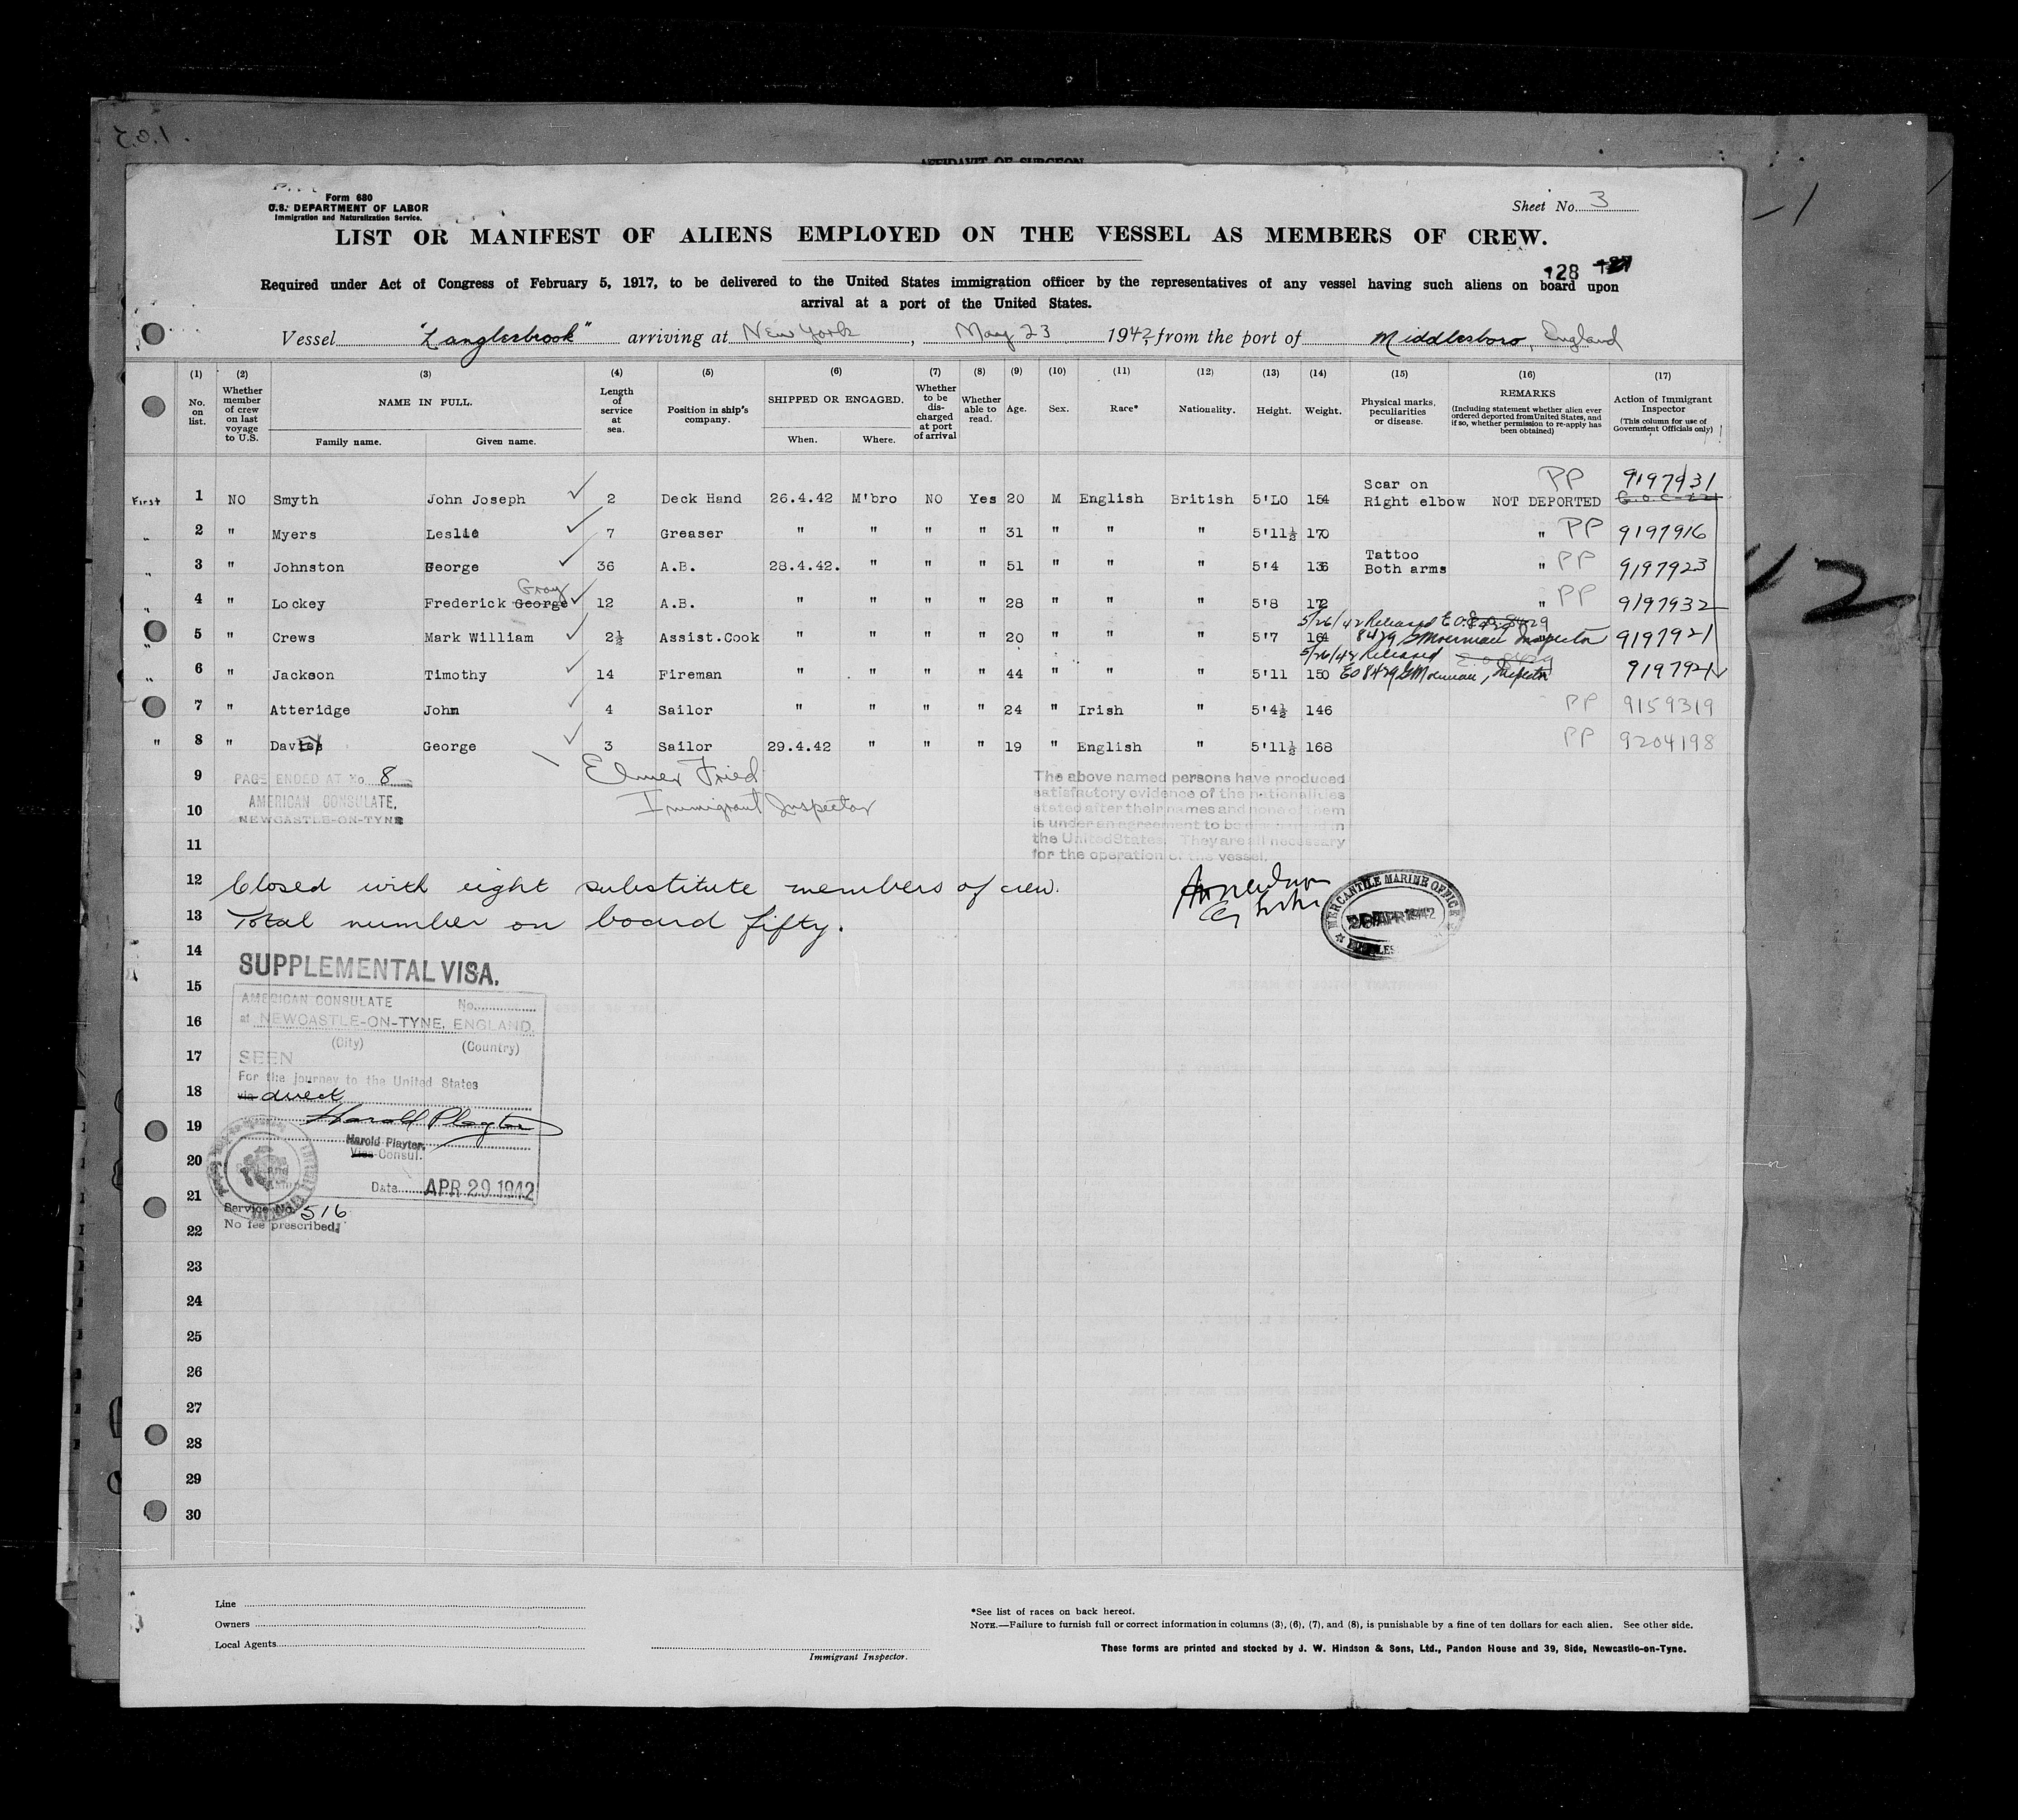 AFFIDAVIT OF SURGEON
Form 680
U.S. DEPARTMENT OF LABOR
Immigration and Naturalization Service.
Sheet No. 3
LIST OR MANIFEST OF ALIENS EMPLOYED ON THE VESSEL AS MEMBERS OF CREW.
128
Required under Act of Congress of February 5, 1917, to be delivered to the United States immigration officer by the representatives of any vessel having such aliens on board upon
arrival at a port of the United States.
Vessel "Langlesbrook" arriving at New York, May 23 1942 from the port of Middlesboro, England
(1) No. on list. (2) Whether member of crew on last voyage to U.S. (3) NAME IN FULL. Family name. Given name. (4) Length of service at sea. (5) Position in ship's company. (6) SHIPPED OR ENGAGED. When. Where. (7) Whether to be discharged at port of arrival (8) Whether able to read. (9) Age. (10) Sex. (11) Race* (12) Nationality. (13) Height. (14) Weight. (15) Physical marks, peculiarities or disease. (16) REMARKS (Including statement whether alien ever ordered deported from United States, and if so, whether permission to re-apply has been obtained) (17) Action of Immigrant Inspector (This column for use of Government Officials only)
First 1 NO Smyth John Joseph 2 Deck Hand 26.4.42 M'bro NO Yes 20 M English British 5'10 154 Scar on Right elbow NOT DEPORTED PP 9197931
" 2 " Myers Leslie 7 Greaser " " " " 31 " " " 5'11½ 170 " PP 9197916
" 3 " Johnston George 36 A.B. 28.4.42. " " " 51 " " " 5'4 136 Tattoo Both arms " PP 9197923
" 4 " Lockey Frederick George Gray 12 A.B. " " " " 28 " " " 5'8 172 " PP 9197932
5/26/42 Released E.O. 8429
" 5 " Crews Mark William 2½ Assist.Cook " " " " 20 " " " 5'7 164 8429 Inspector 9197921
5/26/42 Released
" 6 " Jackson Timothy 14 Fireman " " " " 44 " " " 5'11 150 EO 8429 Inspector
7 " Atteridge John 4 Sailor " " " " 24 " Irish " 5'4½ 146 PP 9159319
" 8 " Davies George 3 Sailor 29.4.42 " " " 19 " English " 5'11½ 168 PP 9204198
9
PAGE ENDED AT No. 8
AMERICAN CONSULATE,
NEWCASTLE-ON-TYNE
Elmer Fried
Immigrant Inspector
The above named persons have produced
satisfactory evidence of the nationalities
stated after their names and none of them
is under an agreement to be
the United States. They are all necessary
for the operation of the vessel.
10
11
12 Closed with eight substitute members of crew.
13 Total number on board fifty.
MERCANTILE MARINE OFFICE
APR 1942
14
SUPPLEMENTAL VISA.
15
AMERICAN CONSULATE No.
16
at NEWCASTLE-ON-TYNE, ENGLAND.
(City) (Country)
17
SEEN
For the journey to the United States
18
via direct
Harold Playter
19
Harold Playter,
Vice Consul.
20
Date APR 29 1942
21
Service No. 516
No fee prescribed.
22
23
24
25
26
27
28
29
30
Line
Owners
Local Agents
Immigrant Inspector.
*See list of races on back hereof.
NOTE.—Failure to furnish full or correct information in columns (3), (6), (7), and (8), is punishable by a fine of ten dollars for each alien. See other side.
These forms are printed and stocked by J. W. Hindson & Sons, Ltd., Pandon House and 39, Side, Newcastle-on-Tyne.